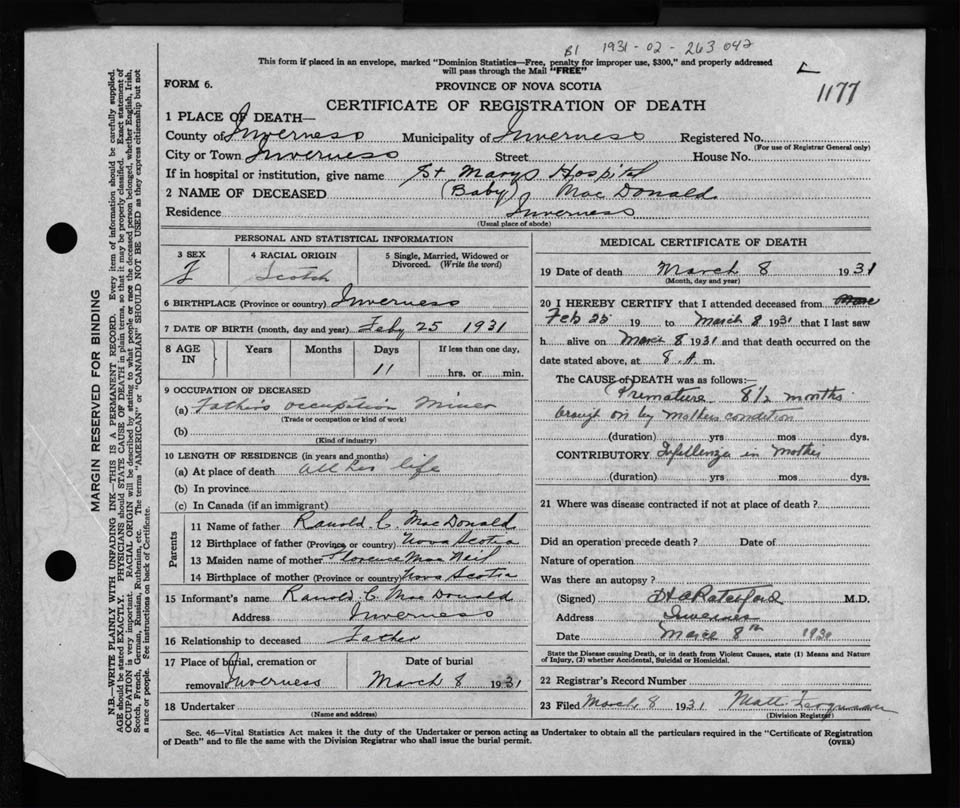 B1 1931-02-263042
This form if placed in an envelope, marked "Dominion Statistics—Free, penalty for improper use, $300," and properly addressed
will pass through the Mail "FREE"
1177
FORM 6.
PROVINCE OF NOVA SCOTIA
CERTIFICATE OF REGISTRATION OF DEATH
1 PLACE OF DEATH—
County of Inverness Municipality of Inverness Registered No.
(For use of Registrar General only)
City or Town Inverness Street House No.
If in hospital or institution, give name St Marys Hospital
2 NAME OF DECEASED (Baby) MacDonald
Residence Inverness
(Usual place of abode)
PERSONAL AND STATISTICAL INFORMATION
3 SEX 4 RACIAL ORIGIN 5 Single, Married, Widowed or
Divorced. (Write the word)
F Scotch
6 BIRTHPLACE (Province or country) Inverness
7 DATE OF BIRTH (month, day and year) Feby 25 1931
8 AGE IN Years Months Days If less than one day,
11 hrs. or min.
9 OCCUPATION OF DECEASED
(a) Father's occupation Miner
(Trade or occupation or kind of work)
(b)
(Kind of industry)
10 LENGTH OF RESIDENCE (in years and months)
(a) At place of death all her life
(b) In province
(c) In Canada (if an immigrant)
Parents
11 Name of father Ranold C. MacDonald
12 Birthplace of father (Province or country) Nova Scotia
13 Maiden name of mother Florence MacNeil
14 Birthplace of mother (Province or country) Nova Scotia
15 Informant's name Ranold C MacDonald
Address Inverness
16 Relationship to deceased Father
17 Place of burial, cremation or Date of burial
removal Inverness March 8 1931
18 Undertaker
(Name and address)
MEDICAL CERTIFICATE OF DEATH
19 Date of death March 8 1931
(Month, day and year)
20 I HEREBY CERTIFY that I attended deceased from
Feb 25 19 to March 8 1931 that I last saw
h alive on March 8 1931 and that death occurred on the
date stated above, at 8 A. m.
The CAUSE of DEATH was as follows:—
Premature 8 1/2 months
brough on by mothers condition
(duration) yrs mos dys.
CONTRIBUTORY in mother
(duration) yrs mos dys.
21 Where was disease contracted if not at place of death?
Did an operation precede death? Date of
Nature of operation
Was there an autopsy?
(Signed) M.D.
Address Inverness
Date March 8th 1931
State the Disease causing Death, or in death from Violent Causes, state (1) Means and Nature
of Injury, (2) whether Accidental, Suicidal or Homicidal.
22 Registrar's Record Number
23 Filed March 8 1931 Matt Ferguson
(Division Registrar)
Sec. 46—Vital Statistics Act makes it the duty of the Undertaker or person acting as Undertaker to obtain all the particulars required in the "Certificate of Registration
of Death" and to file the same with the Division Registrar who shall issue the burial permit.
(OVER)
MARGIN RESERVED FOR BINDING
N.B.—WRITE PLAINLY WITH UNFADING INK—THIS IS A PERMANENT RECORD. Every item of information should be carefully supplied.
AGE should be stated EXACTLY. PHYSICIANS should STATE CAUSE OF DEATH in plain terms, so that it may be properly classified. Exact statement of
OCCUPATION is very important. RACIAL ORIGIN will be described by stating to what people or race the deceased person belonged, whether English, Irish,
Scotch, French, German, Russian, Ruthenian, etc. The terms "AMERICAN" or "CANADIAN" SHOULD NOT BE USED as they express citizenship but not
a race or people. See instructions on back of Certificate.